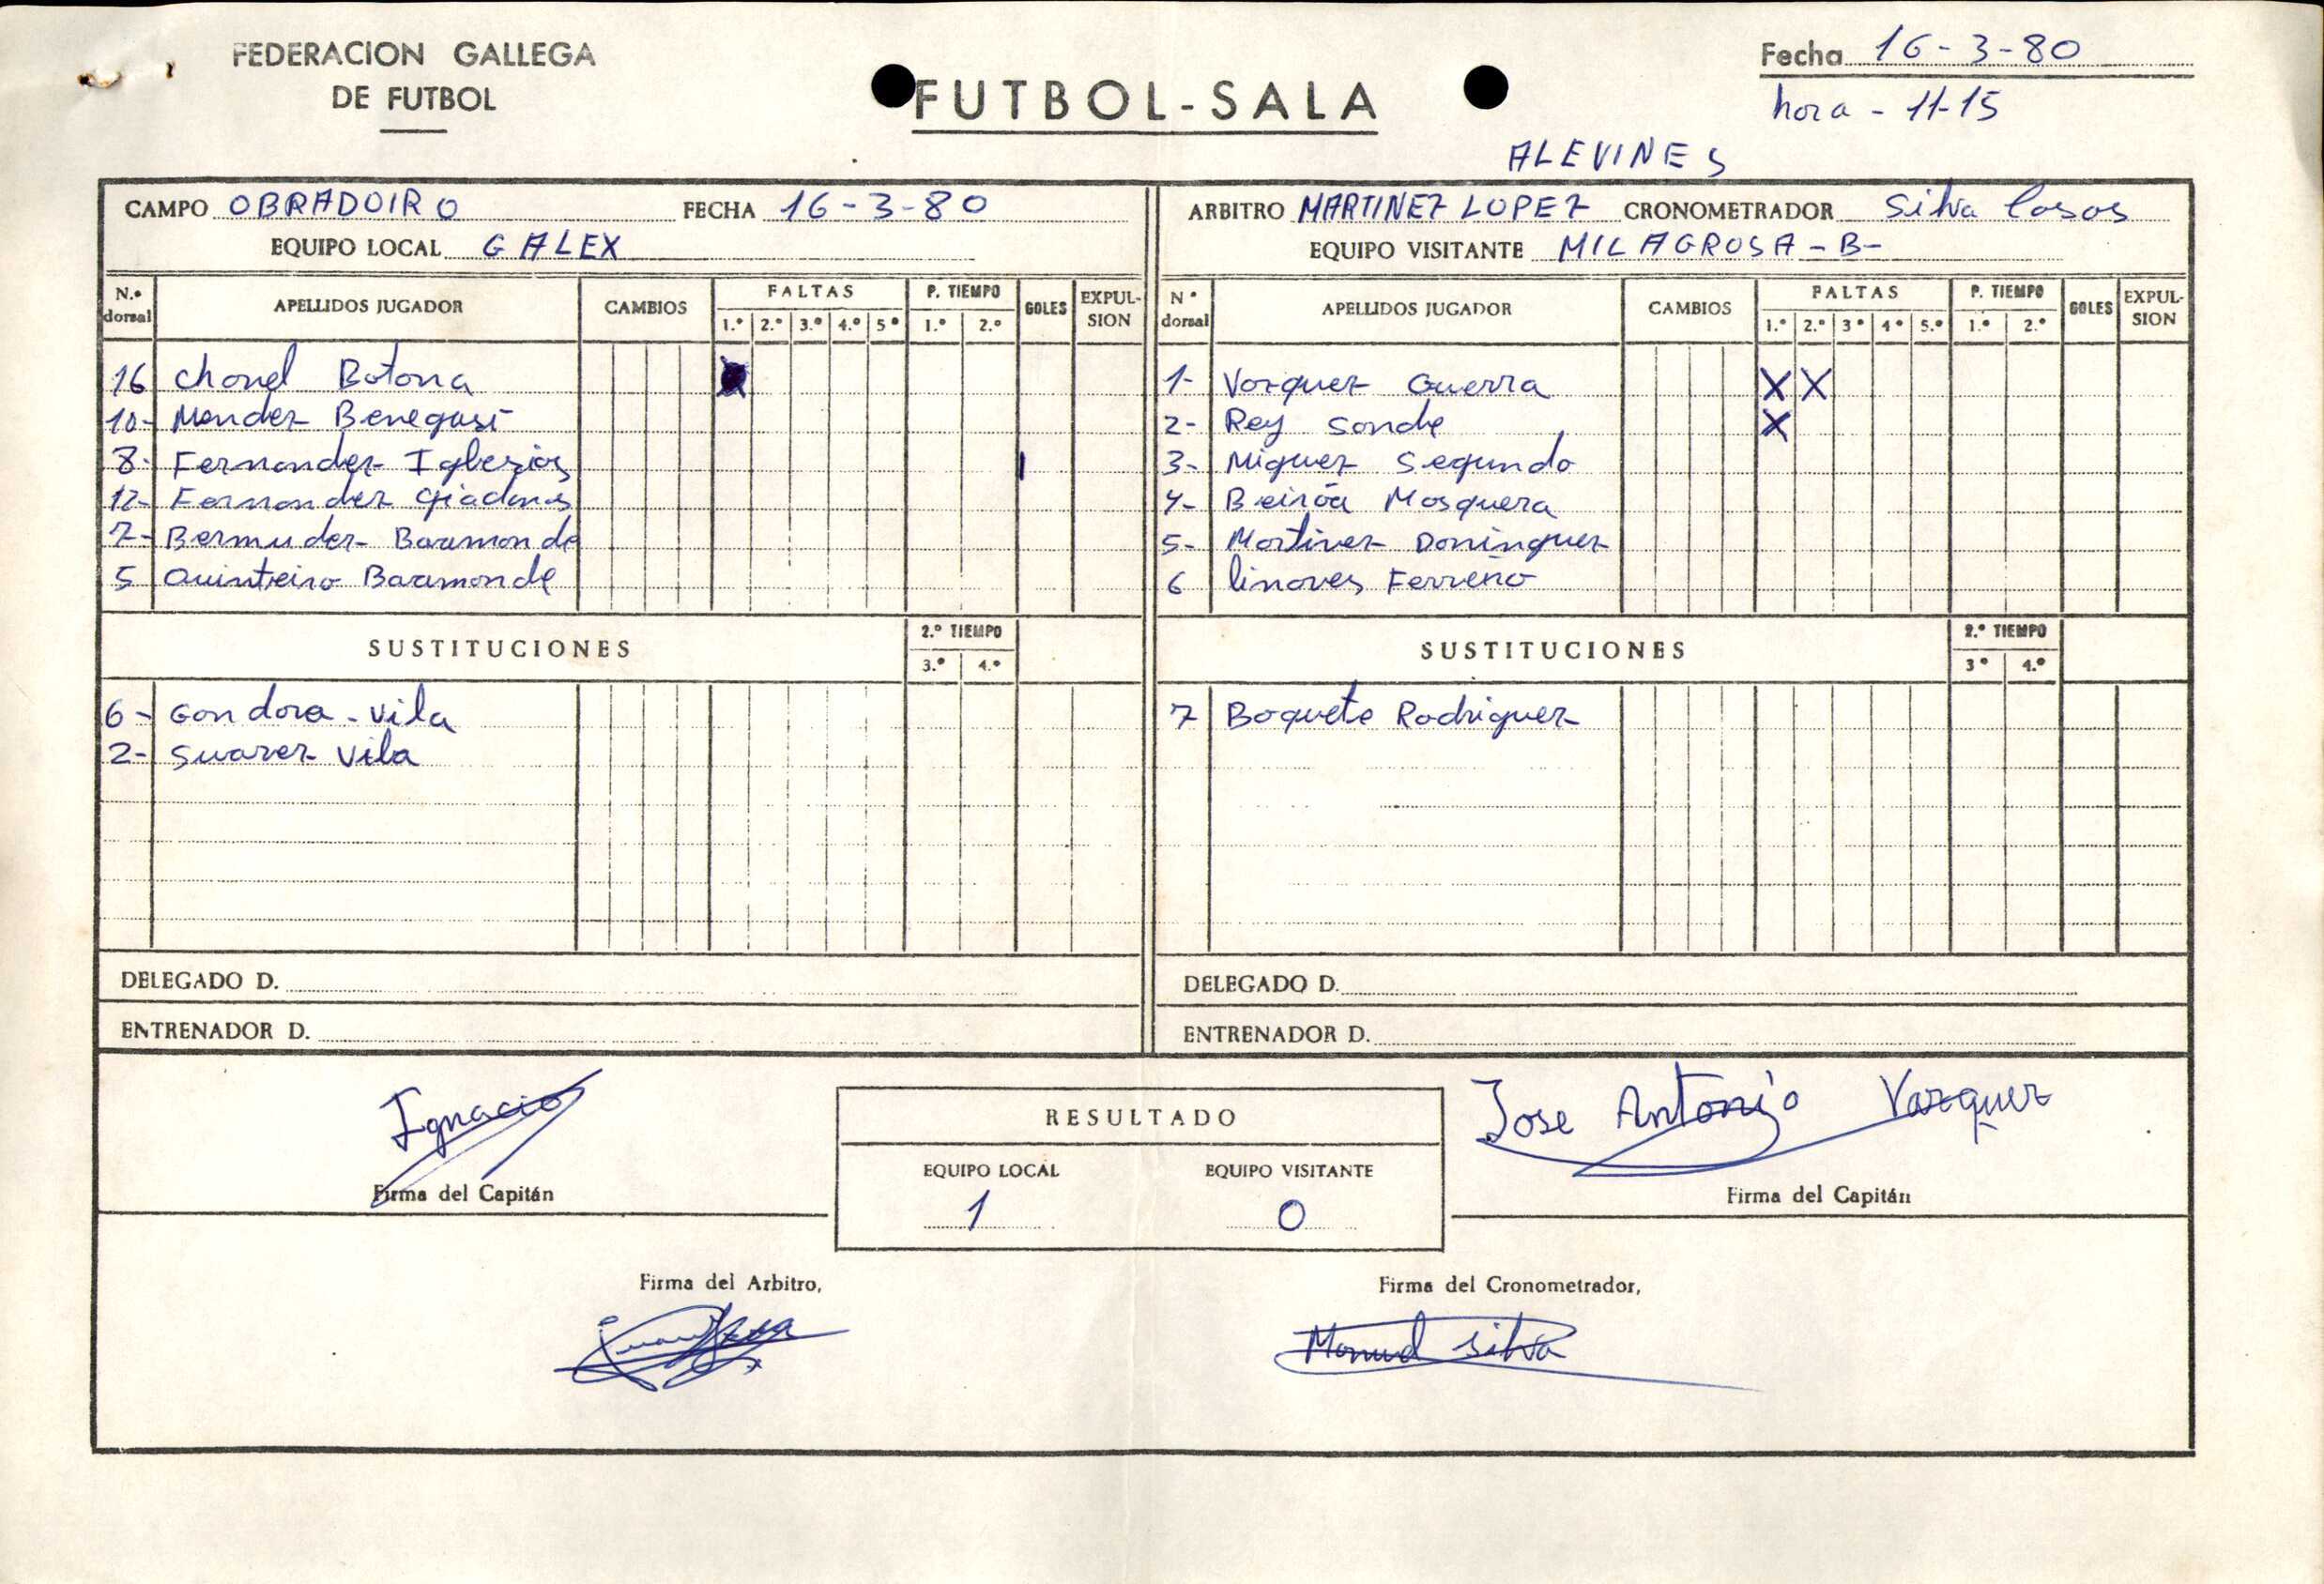 FEDERACION GALLEGA
DE FUTBOL
FUTBOL-SALA
Fecha 16-3-80
hora - 11-15
ALEVINES
CAMPO OBRADOIRO FECHA 16-3-80
EQUIPO LOCAL GALEX
N.º dorsal APELLIDOS JUGADOR CAMBIOS FALTAS P. TIEMPO GOLES EXPUL-SION
1.º 2.º 3.º 4.º 5º 1.º 2.º
16 Chonel Botona
10- Mendez Benegasi
8- Fernandez Iglesias 1
12- Fernandez Giadans
7- Bermudez Baamonde
5 Quinteiro Baamonde
SUSTITUCIONES 2.º TIEMPO
3.º 4.º
6- Gondora - Vila
2- Suarez Vila
DELEGADO D.
ENTRENADOR D.
ARBITRO MARTINEZ LOPEZ CRONOMETRADOR Silva Casas
EQUIPO VISITANTE MILAGROSA -B-
Nº dorsal APELLIDOS JUGADOR CAMBIOS FALTAS P. TIEMPO GOLES EXPUL-SION
1.º 2.º 3º 4º 5.º 1.º 2.º
1- Vazquez Guerra X X
2- Rey Sande X
3- Miguez Segundo
4- Beiróa Mosquera
5- Martinez Dominguez
6 Linares Ferreño
SUSTITUCIONES 2.º TIEMPO
3º 4.º
7 Boquete Rodriguez
DELEGADO D.
ENTRENADOR D.
Ignacio
Firma del Capitán
RESULTADO
EQUIPO LOCAL EQUIPO VISITANTE
1 0
Jose Antonio Vazquez
Firma del Capitán
Firma del Arbitro,
Firma del Cronometrador,
Manuel Silva